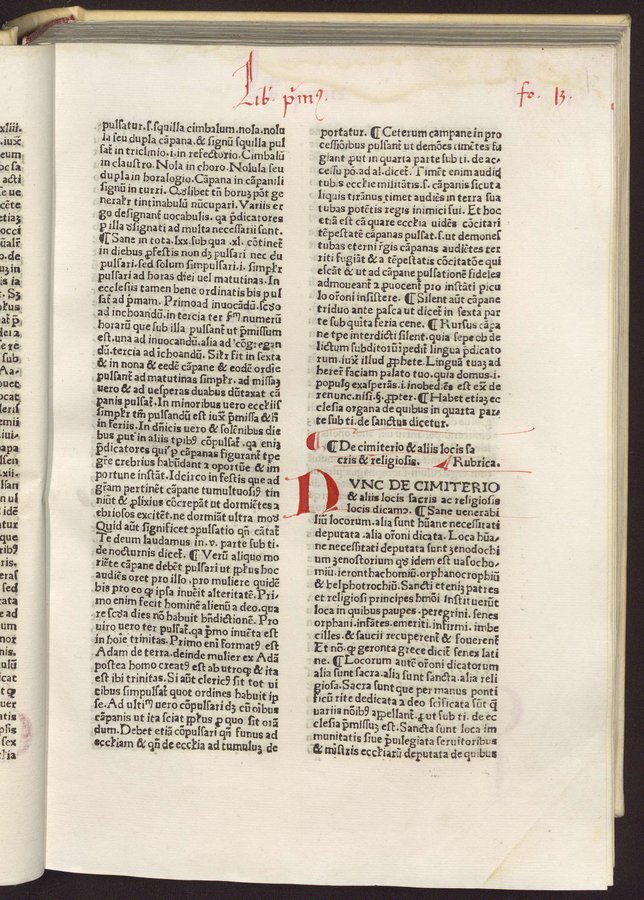 Lib' p̄mꝰ.
fo. 13.
pulsatur.s.squilla cimbalum.nola.nolu
la seu dupla cāpana.& signū squilla pul
sat̄ in triclinio.i.in refectorio.Cimbalū
in claustro.Nola in choro.Nolula seu
dupla in horalogio.Cāpana in cāpanili
signū in turri. Quilibet tn̄ horūꝫ pōt ge
neralr̄ tintinabulū nūcupari.Variis er
go designant̄ uocabulis. qa p̄dicatores
p illa dsignati ad multa necessarii sunt.
¶ Sane in tota.lxx.sub qua.xl.cōtinet̄
in diebus p̄festis non dꝫ pulsari nec du
pulsari.sed solum simpulsari.i.simplr̄
pulsari ad horas diei uel matutinas.In
ecclesiis tamen bene ordinatis bis pul
sat̄ ad p̄mam. Primo ad inuocādū.scꝺo
ad inchoandū.in tercia ter scꝺm numerū
horarū que sub illa pulsant̄ ut p̄missum
est.una ad inuocandū.alia ad cōgregan
dū.tercia ad īchoandū. Silr̄ fit in sexta
& in nona & eedē cāpane & eodē ordie
pulsant̄ ad matutinas simplr̄.ad missaꝫ
uero & ad uesperas duabus dūtaxat cā
panis pulsat̄.In minoribus uero eccl̄iis
simplr̄ tm̄ pulsandū est iux̄ p̄missa & hͦ
in feriis.In dn̄icis uero & solēnibus die
bus put in aliis tp̄ibꝫ cōpulsat̄.qa eniꝫ
p̄dicatores qui p cāpanas figurant̄ tpe
grē crebrius habūdant ⁊ oportūe & im
portune instāt.Idcirco in festis que ad
gram pertinēt cāpane tumultuosiꝰ tin
niūt & plixius cōcrepāt ut dormiētes ⁊
ebriosos excitēt.ne dormiāt ultra modū
Quid aūt significet ꝯpulsatio qn̄ cātat̄
Te deum laudamus in.v. parte sub ti.
de nocturnis dicet̄. ¶ Verū aliquo mo
riēte cāpane debēt pulsari ut pp̄lus hoc
audiēs oret pro illo.pro muliere quidē
bis pro eo ꝙ ipsa inuēit alteritatē.Pri
mo enim fecit hominē alienū a deo.qua
re scꝺa dies nō habuit bn̄dictionē.Pro
uiro uero ter pulsat̄.qa p̄mo inuēta est
in hoīe trinitas.Primo eni formatꝰ est
Adam de terra.deinde mulier ex Adā
postea homo creatꝰ est ab utroqꝫ & ita
est ibi trinitas. Si aūt clericꝰ sit tot ui
cibus simpulsat̄ quot ordines habuit ip
se.Ad ultimū uero cōpulsari dꝫ cū oībus
cāpanis ut ita sciat pp̄lus p quo sit orā
dum.Debet etiā cōpulsari qn̄ funus ad
eccl̄iam & qn̄ de eccl̄ia ad tumulūꝫ de
portatur. ¶ Ceterum campane in pro
cessiōibus pulsant̄ ut demōes timētes fu
giant ꝓut in quarta parte sub ti.de ac/
cessu pō.ad al.dicet̄. Timēt enim auditꝫ
tubis eccl̄ie militātis.s.cāpanis sicut a
liquis tirānus timet audiēs in terra sua
tubas potētis regis inimici sui.Et hoc
etiā est cā quare eccl̄ia uidēs cōcitari
tēpestatē cāpanas pulsat.s.ut demones
tubas eterni rgis cāpanas audiētes ter
riti fugiāt & a tēpestatis cōcitatōe qui
escāt & ut ad cāpane pulsationē fideles
admoueant̄ ⁊ puocent̄ pro instāti picu
lo orōni insistere. ¶ Silent aūt cāpane
triduo ante pasca ut dicet̄ in sexta par
te sub quīta feria cene. ¶ Rursus cāpa
ne tpe interdicti silent.quia sepe ob de
lictum subditorū īpedit̄ lingua p̄dicato
rum.iux̄ illud pphete. Linguā tuaꝫ ad
herere faciam palato tuo.quia domus.i.
populꝫ exasperās.i.inobed.ēs est ex̄.de
renunc.nisi.§.ppter. ¶ Habet etiaꝫ ec
clesia organa de quibus in quarta par/
te sub ti. de sanctus dicetur.
¶ De cimiterio & aliis locis sa
cris & religiosis. Rubrica.
NVNC DE CIMITERIO
& aliis locis sacris ac religiosis
locis dicamꝰ. ¶ Sane uenerabi
liū locorum.alia sunt hūane necessitati
deputata.alia orōni dicata. Loca hūa/
ne necessitati deputata sunt xenodochi
um xenostorium qꝺ idem est uasocho/
miū.ieronthachomiū.orphanocrophiū
& belphotrochiū.Sancti eteniꝫ patres
et religiosi principes hmōi īstituerūt
loca in quibus paupes.peregrini.senes
orphani.infātes.emeriti.infirmi.imbe
cilles.& saucii recuperent̄ & fouerent̄
Et nō.ꝙ geronta grece dicit̄ senes lati
ne. ¶ Locorum autē orōni dicatorum
alia sunt sacra.alia sunt sancta.alia reli
giosa.Sacra sunt que per manus ponti
ficū rite dedicata ⁊ deo scificata sūt q̄
uariis nōibꝰ appellant̄.put sub ti.de ec
clesia p̄missuꝫ est. Sancta sunt loca im
munitatis siue p̄uilegiata seruitoribus
& mīstris eccl̄iarū deputata de quibus